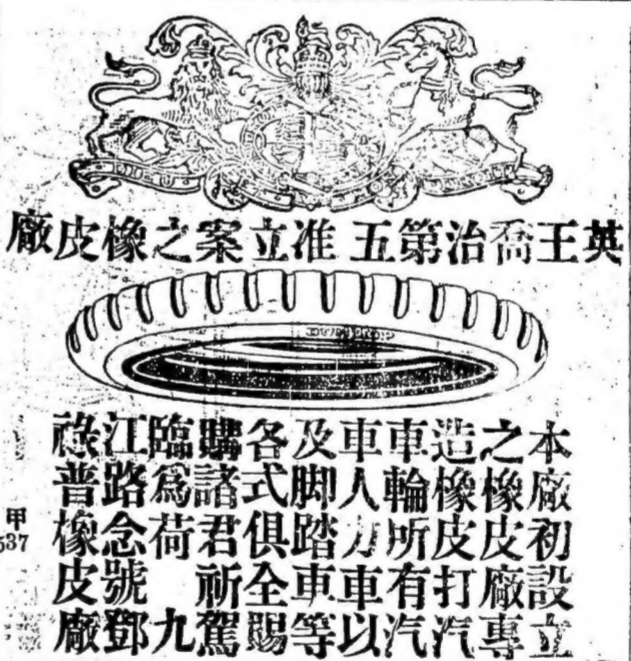 英王喬治第五 准立案之橡皮廠
本廠初設立
之橡皮廠專
造橡皮打汽
車輪所有汽
車人力車以
及脚踏車等
各式俱全賜
購諸君祈駕
臨爲荷　九
江路念號鄧
祿普橡皮廠
甲
537